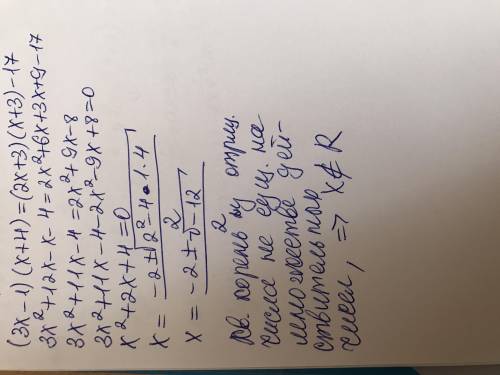 (3x-1)(x+4)=(2x+3)(x+3)-17
3x²+12x-x-4=2x²+6x+3x+9-17
3x²+11x-4=2x²+9x-8
3x²+11x-4-2x²-9x+8=0
x²+2x+4=0
x = (-2±√(2²-4·1·4))/2
x = (-2±√-12)/2
кв. корень из отриц.
числа не сущ. на
множестве дей-
ствительных
чисел, => x∉R